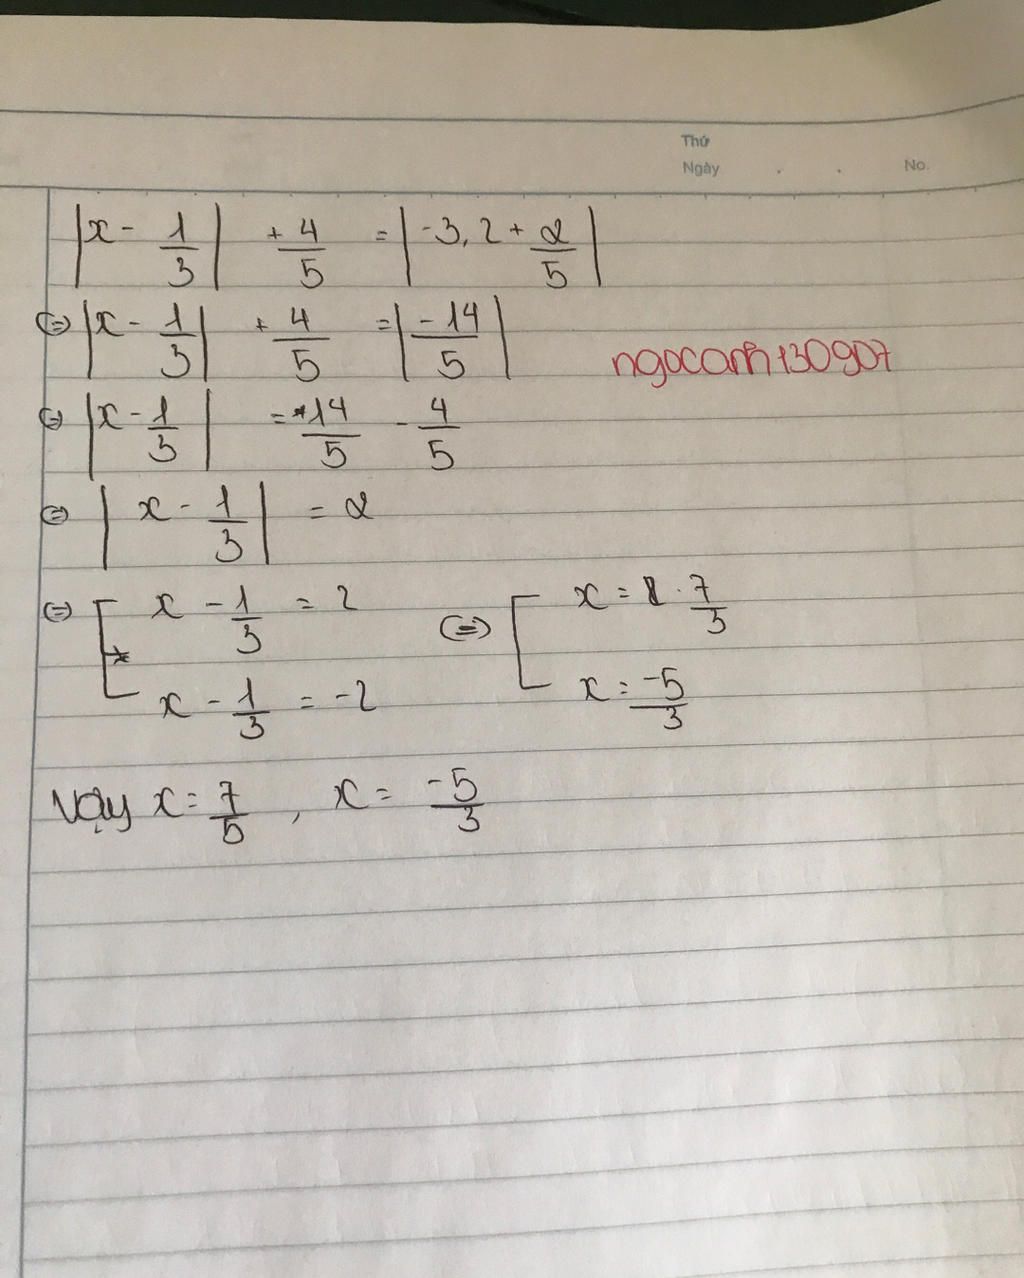 Thứ
Ngày . . No.
|x - 1/3| + 4/5 = |-3,2 + 2/5|
(=) |x - 1/3| + 4/5 = |-14/5|
ngocanh130907
(=) |x - 1/3| = 14/5 - 4/5
(=) |x - 1/3| = 2
(=) [ x - 1/3 = 2 (=) [ x = 7/3
x - 1/3 = -2 x = -5/3
Vậy x = 7/5 , x = -5/3